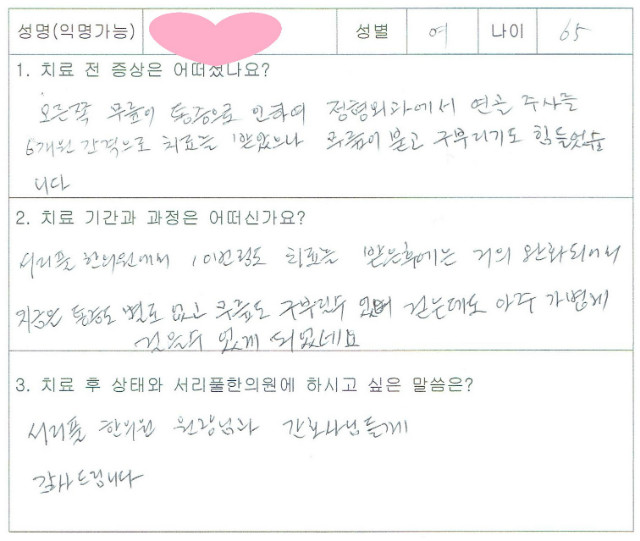 성명(익명가능) 성별 여 나이 65
1. 치료 전 증상은 어떠셨나요?
오른쪽 무릎이 통증으로 인하여 정형외과에서 연골 주사를
6개월 간격으로 치료를 받았으나 무릎이 붓고 구부리기도 힘들었습
니다
2. 치료 기간과 과정은 어떠신가요?
서리풀 한의원에서 1이번정도 치료를 받은후에는 거의 완화되어서
지금은 통증도 별로 없고 무릎도 구부릴수 있으며 걷는데도 아주 가볍게
걸을수 있게 되었네요
3. 치료 후 상태와 서리풀한의원에 하시고 싶은 말씀은?
서리풀 한의원 원장님과 간호사님들게
감사드립니다